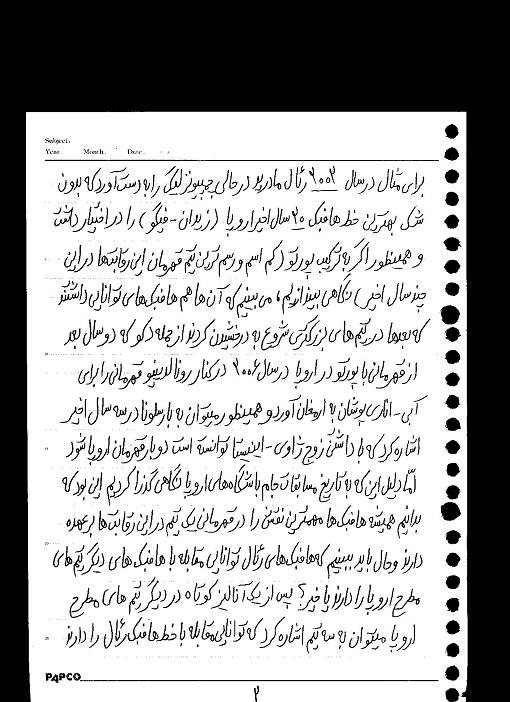 Subject:
Year. Month. Date.
برای مثال در سال ۲۰۰۲ رئال مادرید در حالی چمپیونز لیگ را به دست آورد که بدون
شک بهترین خط هافبک ۲۰ سال اخیر اروپا (زیدان - فیگو) را در اختیار داشت
و همینطور اگر به ترکیب پورتو (کم اسم و رسم ترین تیم قهرمان این رقابتها در این
چند سال اخیر) نگاهی بیندازیم، می بینیم که آن ها هم هافبک های توانایی داشتند
که بعدها در تیم های بزرگتری شروع به درخشیدن کردند از جمله دکو که دو سال بعد
از قهرمانی با پورتو در اروپا در سال ۲۰۰۶ در کنار رونالدینیو قهرمانی را برای
آبی - اناری پوشان به ارمغان آورد و همینطور میتوان به بارسلونا در سه سال اخیر
اشاره کرد که با داشتن زوج ژاوی - اینیستا توانسته است دو بار قهرمان اروپا شود
امّا دلیل این که به تاریخ مسابقات جام باشگاه های اروپا نگاهی گذرا کردیم این بود که
بدانیم همیشه هافبک ها مهمترین نقش را در قهرمانی یک تیم در این رقابت ها بر عهده
دارند و حال باید ببینیم که هافبک های رئال توانایی مقابله با هافبک های دیگر تیم های
مطرح اروپا را دارند یا خیر؟ پس از یک آنالیز کوتاه در دیگر تیم های مطرح
اروپا میتوان به سه تیم اشاره کرد که توانایی مقابله با خط هافبک رئال را دارند
PAPCO
۲